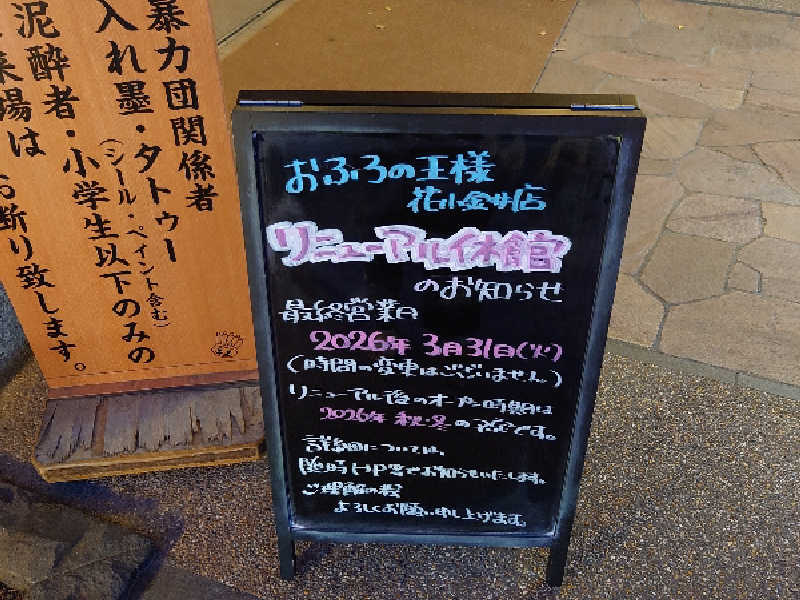 暴力団関係者
入れ墨・タトゥー
(シール・ペイント含む)
泥酔者・小学生以下のみの
お断り致します。
おふろの王様
花小金井店
リニューアル休館
のお知らせ
最終営業日
2026年 3月31日(火)
(時間の変更はございません。)
リニューアル後のオープン時期は
2026年 秋〜冬の予定です。
詳細については、
随時HP等でお知らせいたします。
ご理解の程
よろしくお願い申し上げます。